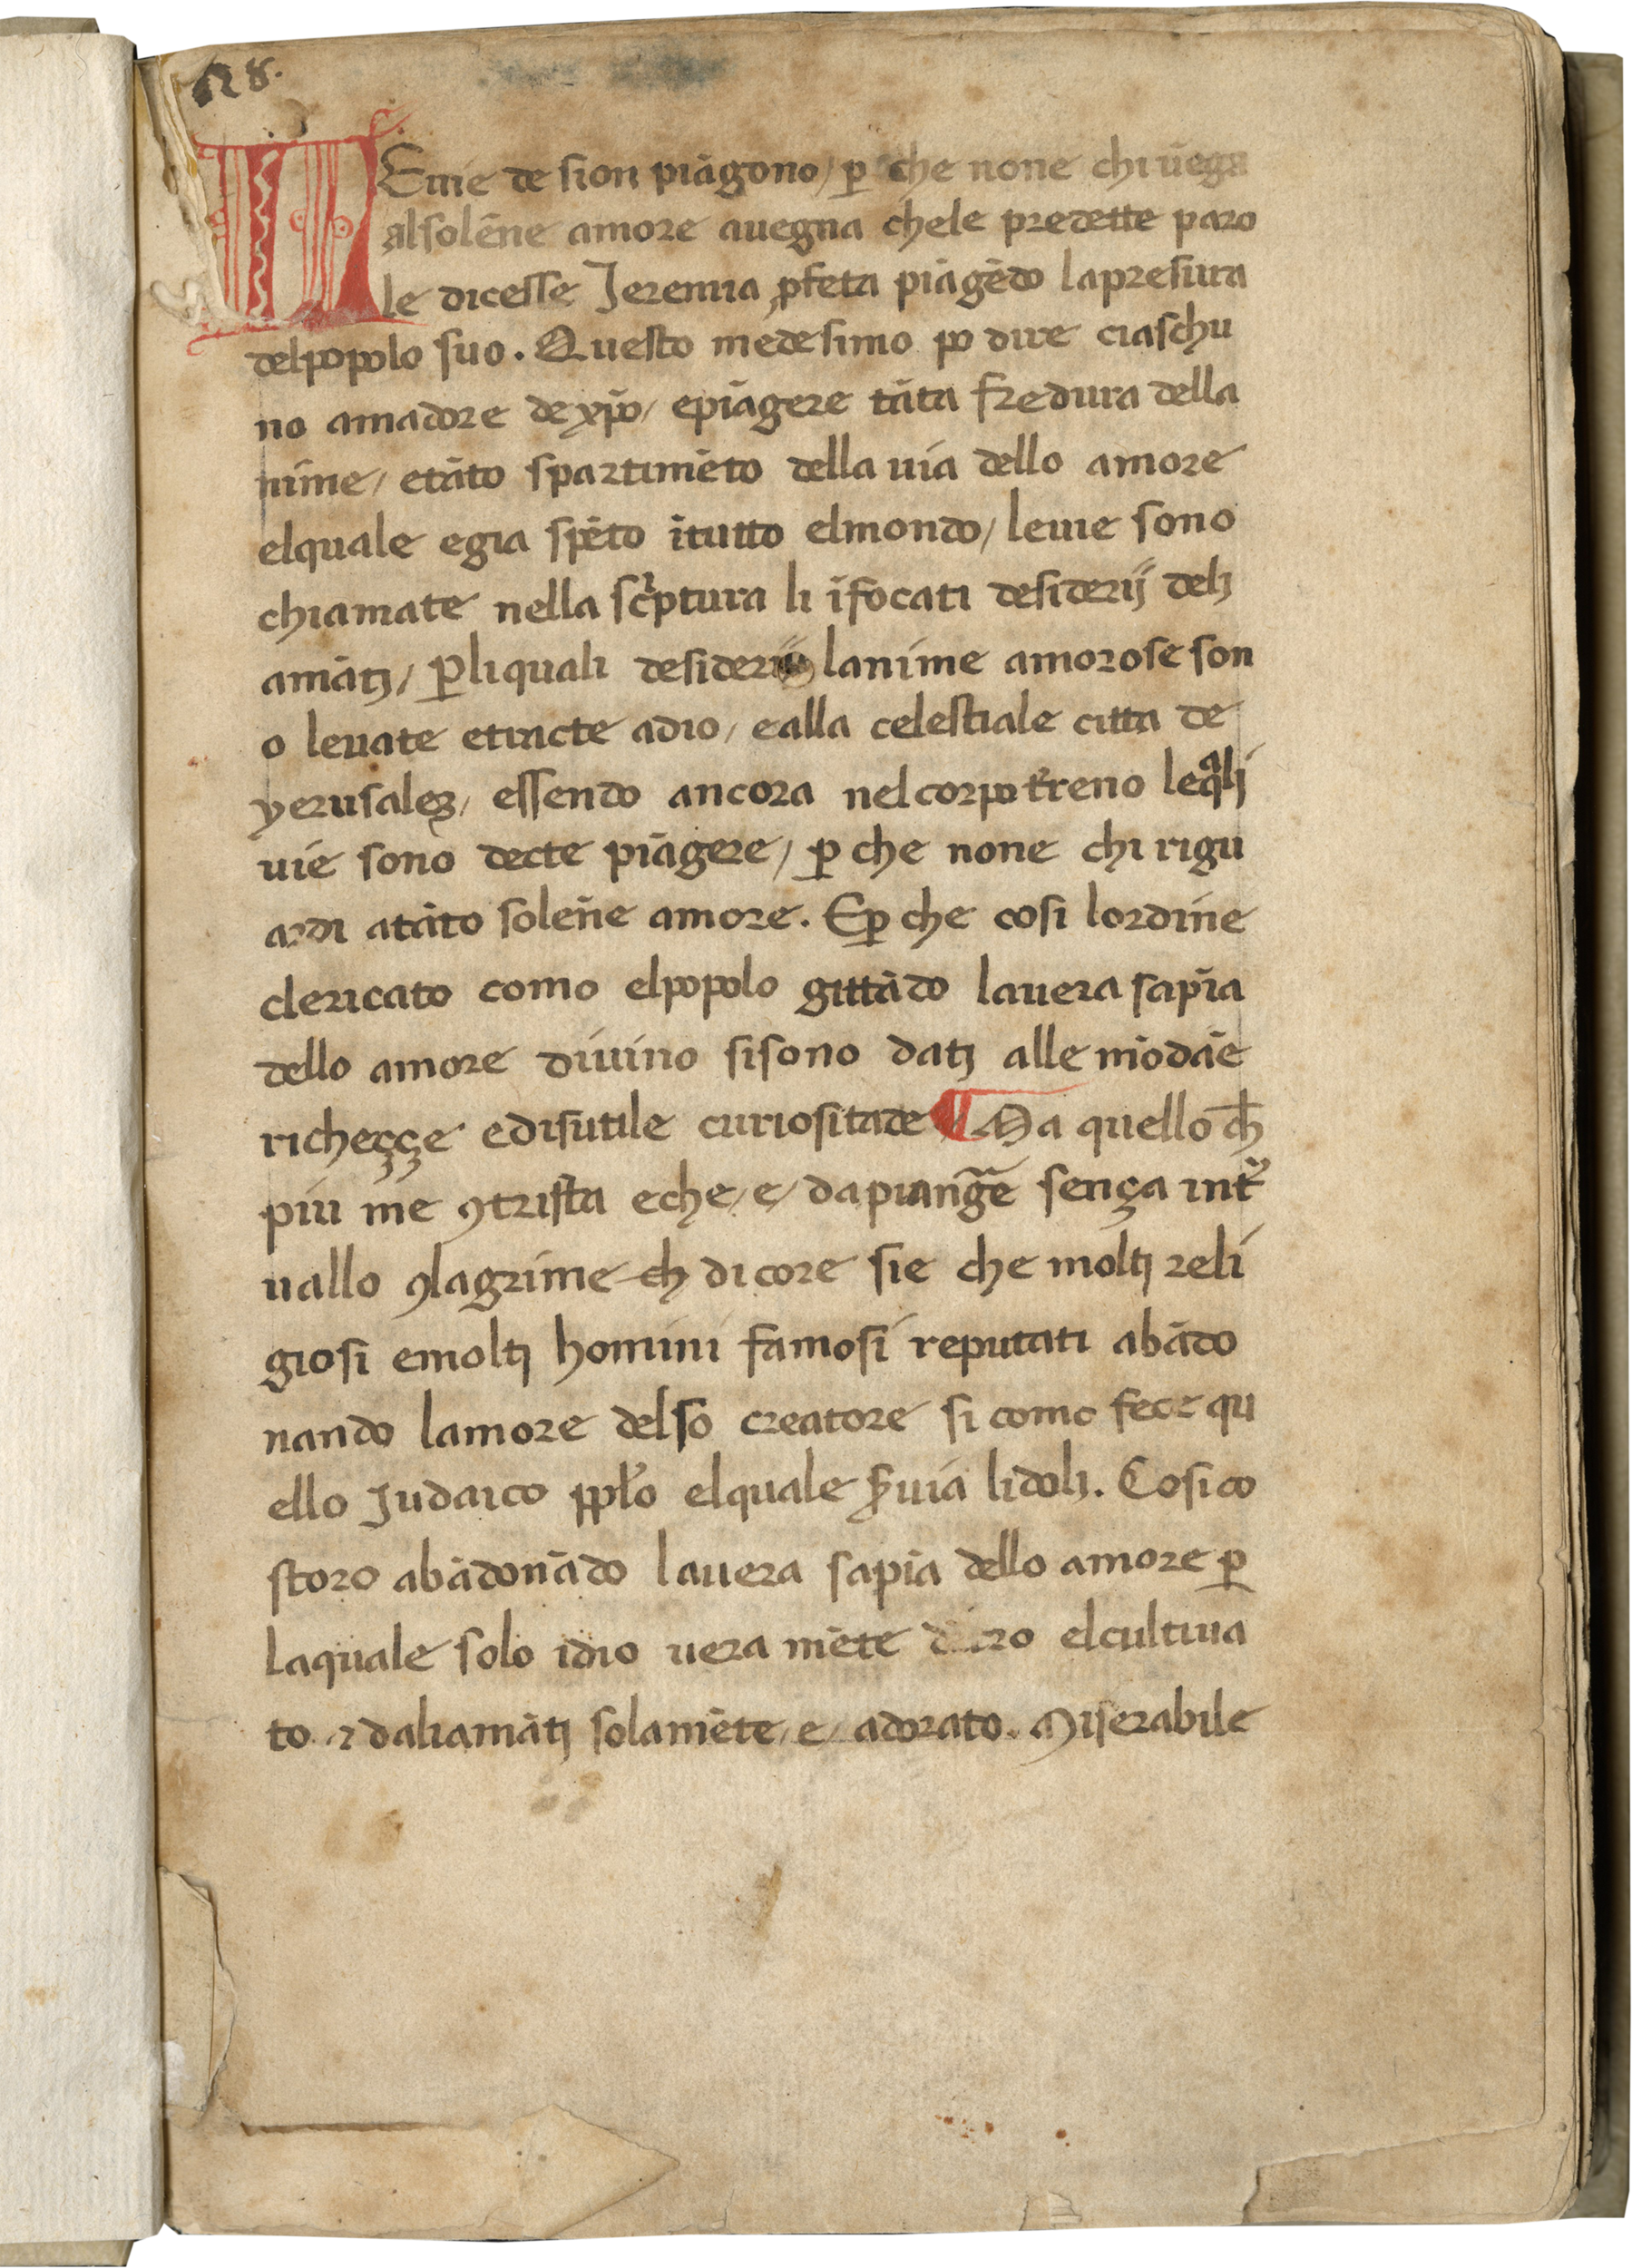 128.
LE uie de sion piāgono/ ꝑ che none chi uēga
alsolēne amore auegna chele predette paro
le dicesse Jeremia ꝓfeta piāgēdo lapresura
delpopolo suo. Questo medesimo po dire ciaschu
no amadore de xp̄o/ epiāgere tāta fredura della
nime/ etāto spartimēto della uia dello amore
elquale egia spēto ītutto elmondo/ leuie sono
chiamate nella sc̓ptura li īfocati desiderij delj
amātj/ ꝑliquali desiderij lanime amorose son
o leuate etracte adio/ ealla celestiale citta de
yerusaleꝫ/ essendo ancora nelcorpo t̓reno leqᵃlj
uie sono decte piāgere/ ꝑ che none chi rigu
ardi atāto solēne amore. Eꝑ che cosi lordine
clericato como elpopolo gittādo lauera sapīa
dello amore diuino sisono datj alle mōdāe
richeççe edisutile curiositade ¶ Ma quello cħ
piu me ꝯtrista eche/ e/ dapiang̅e sença int̓
uallo ꝯlagrime cħ dicore sie che moltj reli
giosi emoltj homini famosi reputati abādo
nando lamore delso creatore si como fece qu
ello Judaico ppl̓o elquale ẜuia lidolj. Cosi co
storo abādonādo lauera sapīa dello amore ꝑ
laquale solo idio uera mēte elcultiua
to ⁊ daliamātj solamēte/ e/ adorato. Miserabile